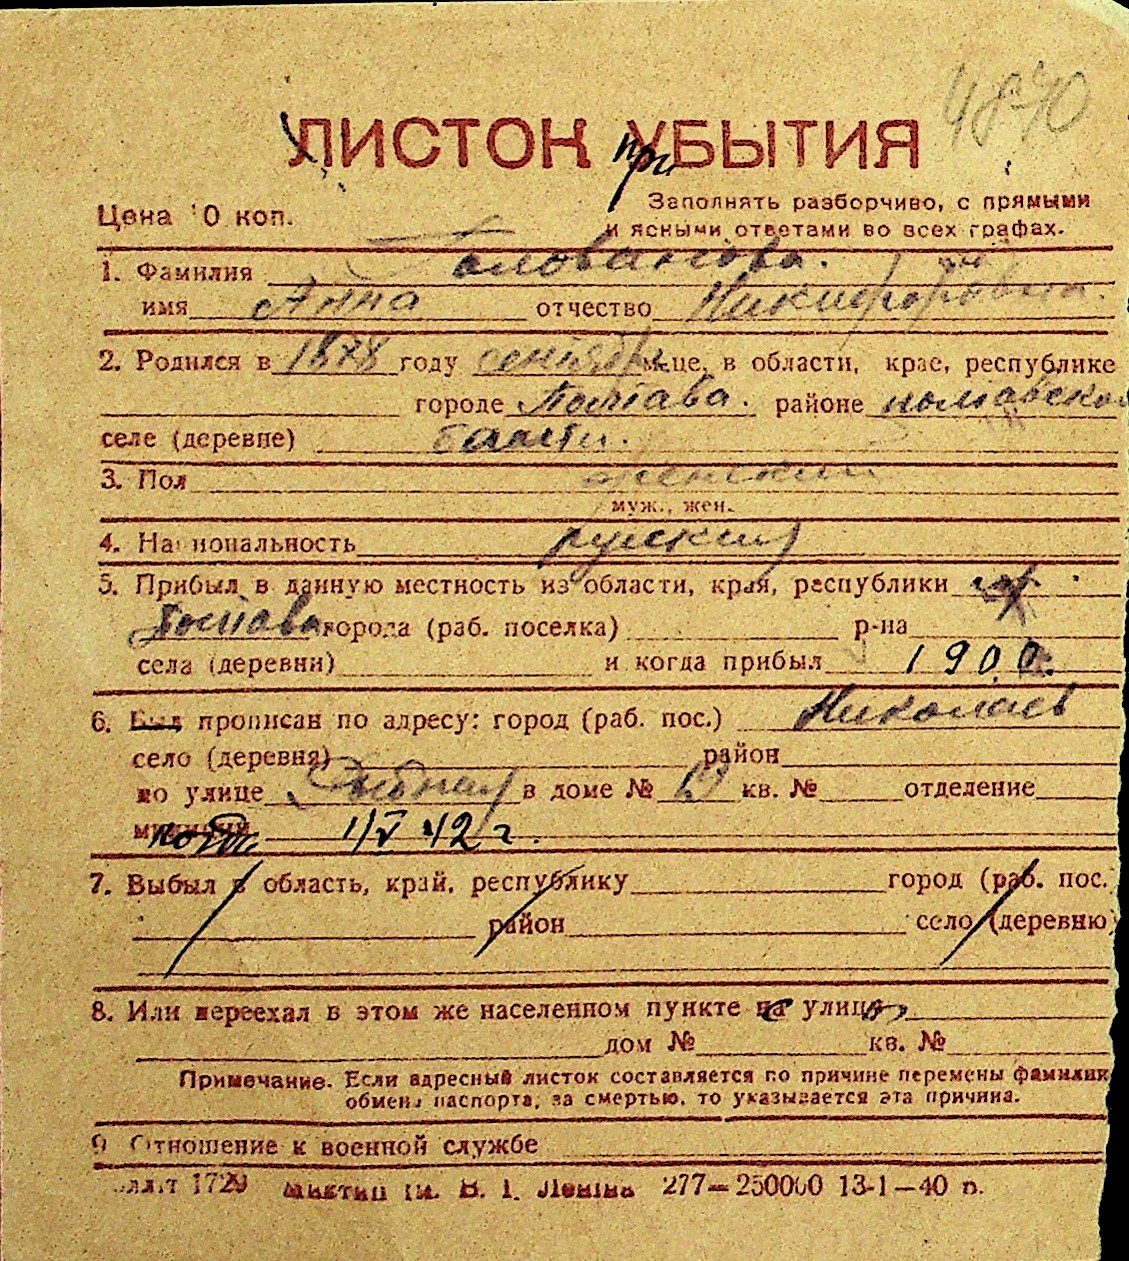 4870
ЛИСТОК приУБЫТИЯ
Цена 0 коп.
Заполнять разборчиво, с прямыми
и ясными ответами во всех графах.
1. Фамилия
имя Анна отчество Никифоровна.
2. Родился в 1878 году сентября м-це, в области, крае, республике
городе Полтава. районе полтавской
селе (деревне)
3. Пол женский
муж., жен.
4. Национальность русская
5. Прибыл в данную местность из области, края, республики
Полтава города (раб. поселка) р-на
села (деревни) и когда прибыл 1900.
6. Был прописан по адресу: город (раб. пос.) Николаев
село (деревня) район
по улице в доме № кв. № отделение
милиции 1/V 42 г.
7. Выбыл в область, край, республику город (раб. пос.
район село (деревню)
8. Или переехал в этом же населенном пункте на улицу
дом № кв. №
Примечание. Если адресный листок составляется по причине перемены фамилии
обмена паспорта, за смертью, то указывается эта причина.
9 Отношение к военной службе
1729 им. В. І. Леніна 277—250000 13-1—40 п.